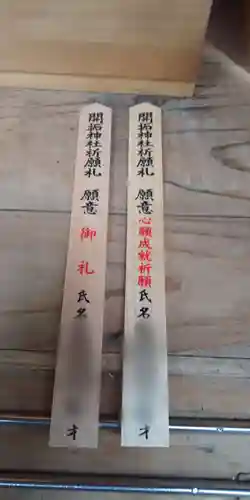 開拓神社祈願札 願意 心願成就祈願 氏名 才
開拓神社祈願札 願意 御礼 氏名 才